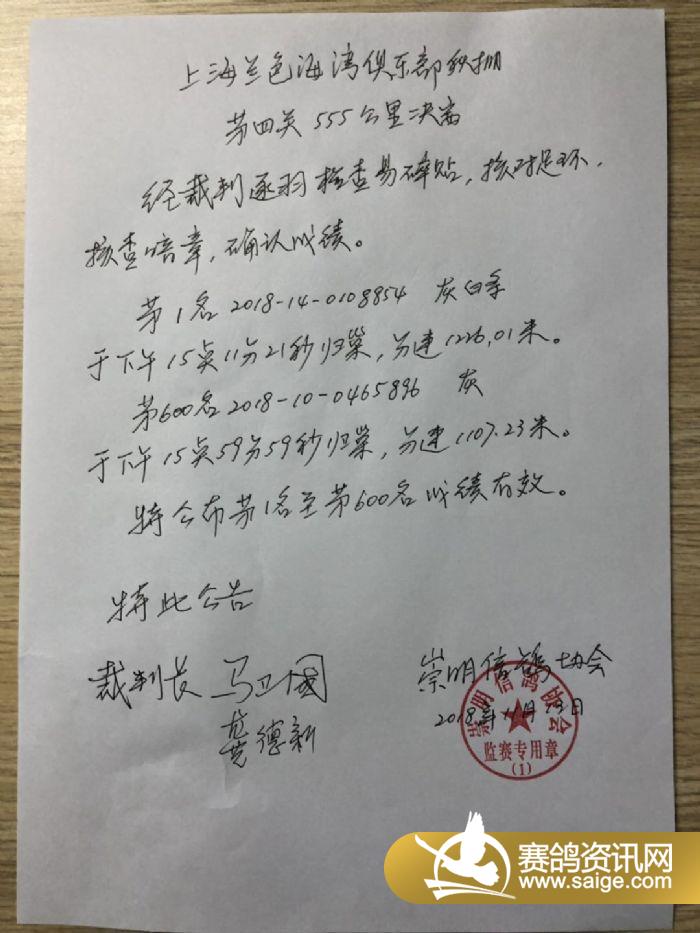 上海兰色海湾俱乐部
第四关 555公里决赛
经裁判逐羽检查易碎贴,核对足环,
核查暗章,确认成绩。
第1名 2018-14-0108854 灰白条
于下午15点11分21秒归巢,分速1226.01米。
第600名 2018-10-0465896 灰
于下午15点59分59秒归巢,分速1107.23米。
特公布第1名至第600名成绩有效。
特此公告
裁判长 马卫国
德新
崇明信鸽协会
2018年11月 日
崇明信鸽协会
监赛专用章
(1)
赛鸽资讯网
www.saige.com